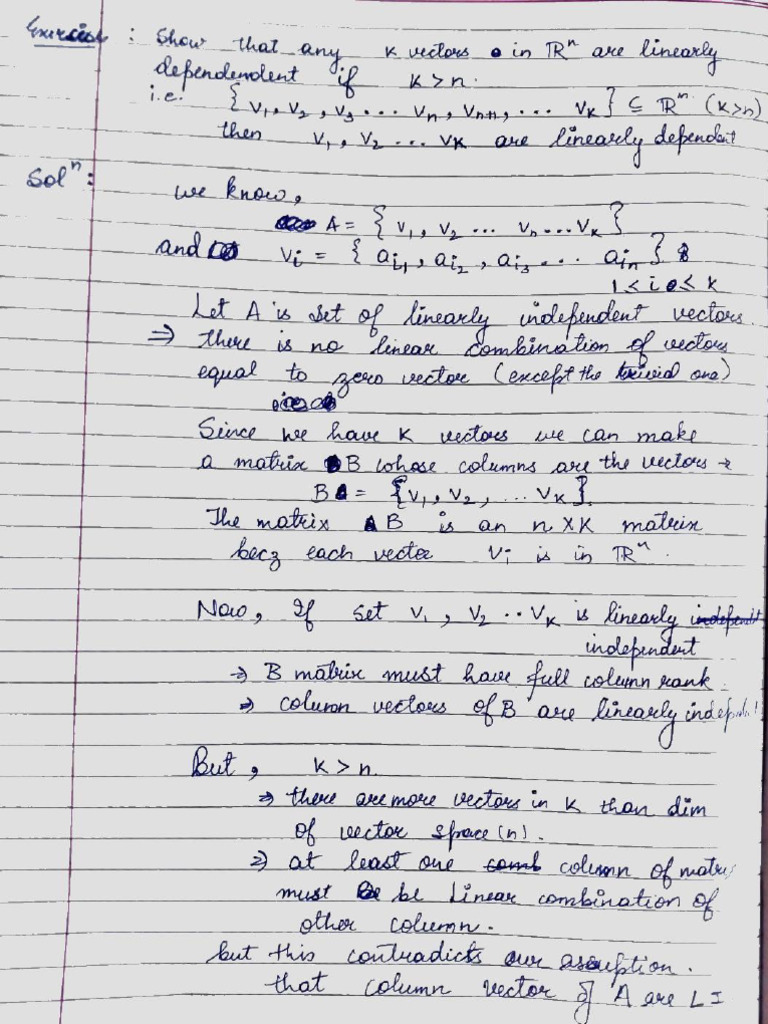 Exercise : Show that any k vectors in ℝⁿ are linearly
dependendent if k > n.
i.e. {v₁, v₂, v₃ ... vₙ, vₙ₊₁, ... vₖ} ⊆ ℝⁿ (k>n)
then v₁, v₂ ... vₖ are linearly dependent
Solⁿ :
we know,
A = {v₁, v₂ ... vₙ ... vₖ}
and vᵢ = {aᵢ₁, aᵢ₂, aᵢ₃ ... aᵢₙ}
1 < i < k
Let A is set of linearly independent vectors
⇒ there is no linear combination of vectors
equal to zero vector (except the trivial one)
Since we have k vectors we can make
a matrix B whose columns are the vectors →
B = {v₁, v₂, ... vₖ}
The matrix B is an n × k matrix
becz each vector vᵢ is in ℝⁿ.
Now, If set v₁, v₂ .. vₖ is linearly
independent
⇒ B matrix must have full column rank.
⇒ column vectors of B are linearly indep
But, k > n.
⇒ there are more vectors in k than dim
of vector space (n).
⇒ at least one column of matri
must be linear combination of
other column.
but this contradicts our assuption.
that column vector of A are LI